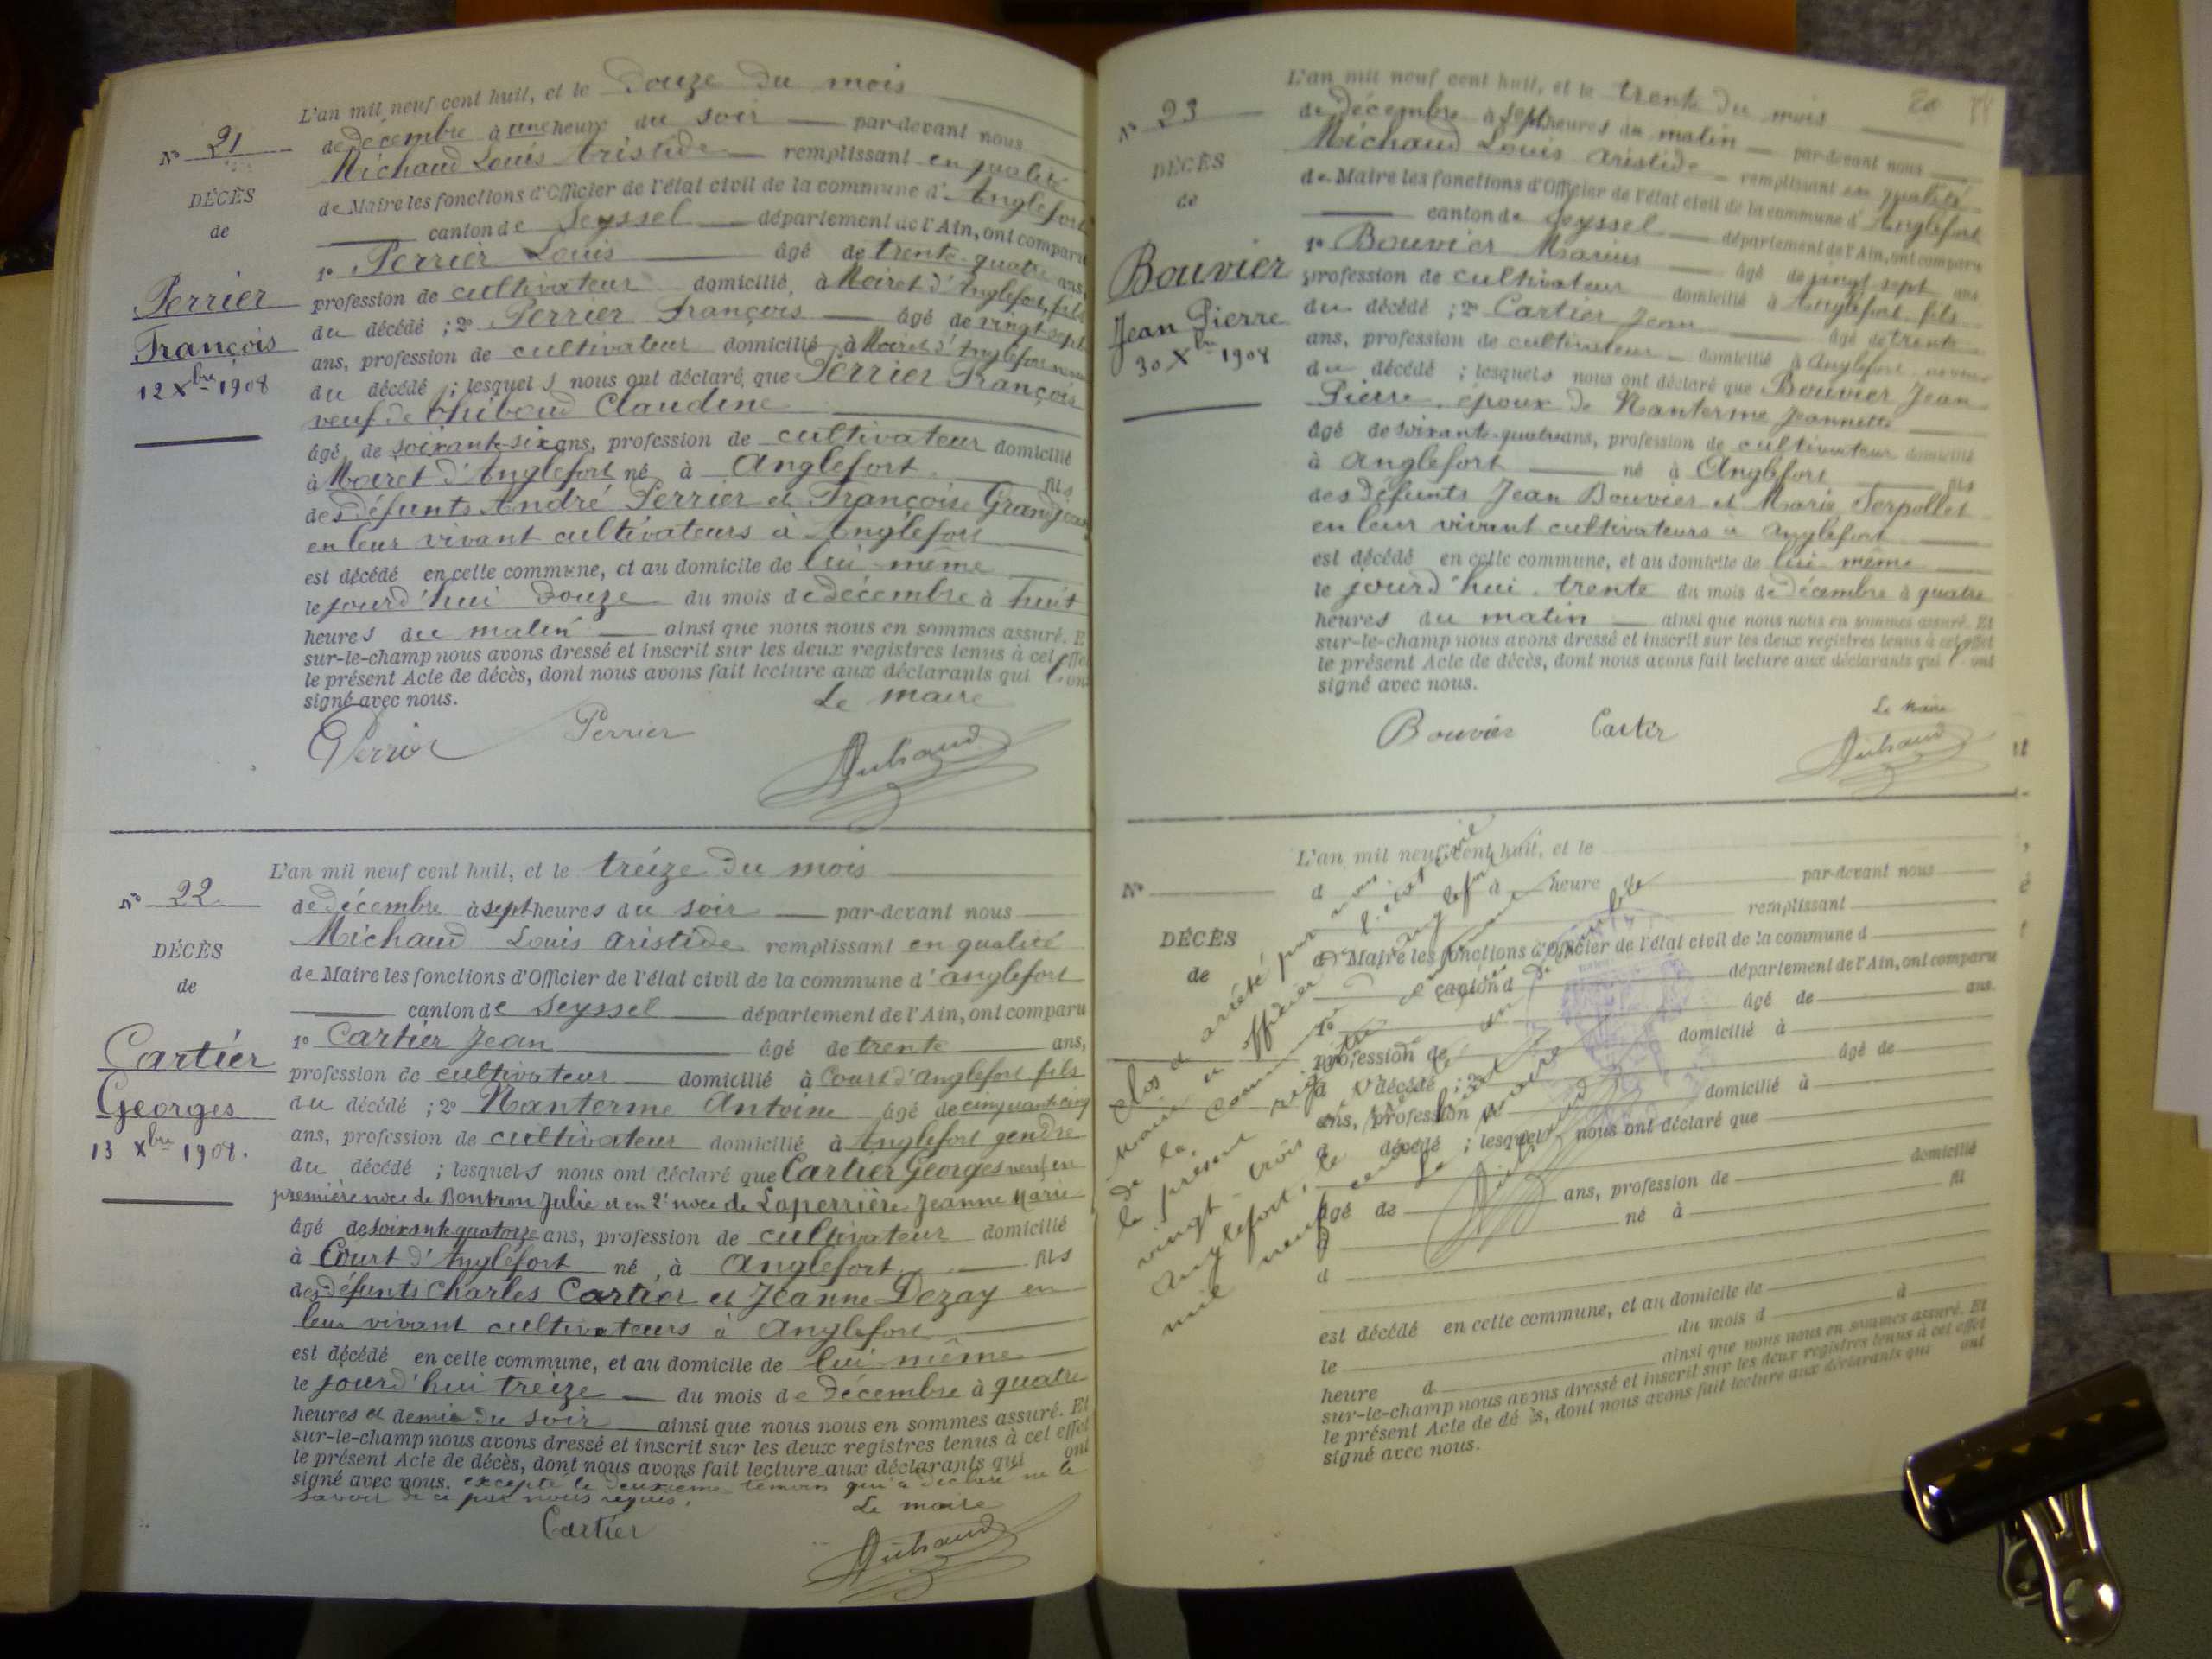 L'an mil neuf cent huit, et le Douze du mois
N° 21
de décembre à une heure du soir par-devant nous
Michaud Louis Aristide remplissant en qualité
DÉCÈS
de Maire les fonctions d'Officier de l'état civil de la commune d'Anglefort
de
canton de Seyssel département de l'Ain, ont comparu
1° Perrier Louis âgé de trente-quatre ans,
Perrier
profession de cultivateur domicilié à Moiret d'Anglefort, fils
du décédé ; 2° Perrier François âgé de vingt-sept
François
ans, profession de cultivateur domicilié à Moiret d'Anglefort
12 Xbre 1908
du décédé ; lesquels nous ont déclaré que Perrier François
veuf de Thiboud Claudine
âgé de soixante-six ans, profession de cultivateur domicilié
à Moiret d'Anglefort né à Anglefort fils
des défunts André Perrier et Françoise Grandjean
en leur vivant cultivateurs à Anglefort
est décédé en cette commune, et au domicile de lui-même
le jourd'hui Douze du mois de décembre à huit
heures du matin ainsi que nous nous en sommes assuré. Et
sur-le-champ nous avons dressé et inscrit sur les deux registres tenus à cet effet
le présent Acte de décès, dont nous avons fait lecture aux déclarants qui l'ont
signé avec nous.
Le maire
Perrier Perrier Michaud
L'an mil neuf cent huit, et le treize du mois
N° 22
de décembre à sept heures du soir par-devant nous
Michaud Louis Aristide remplissant en qualité
DÉCÈS
de Maire les fonctions d'Officier de l'état civil de la commune d'Anglefort
de
canton de Seyssel département de l'Ain, ont comparu
1° Cartier Jean âgé de trente ans,
Cartier
profession de cultivateur domicilié à Court d'Anglefort fils
Georges
du décédé ; 2° Nanterme Antoine âgé de cinquante cinq
ans, profession de cultivateur domicilié à Anglefort gendre
13 Xbre 1908.
du décédé ; lesquels nous ont déclaré que Cartier Georges veuf en
première noce de Bontron Julie et en 2e noce de Laperrière Jeanne Marie
âgé de soixante quatorze ans, profession de cultivateur domicilié
à Court d'Anglefort né à Anglefort fils
des défunts Charles Cartier et Jeanne Dezay en
leur vivant cultivateurs à Anglefort
est décédé en cette commune, et au domicile de lui-même
le jourd'hui treize du mois de décembre à quatre
heures et demie du soir ainsi que nous nous en sommes assuré. Et
sur-le-champ nous avons dressé et inscrit sur les deux registres tenus à cet effet
le présent Acte de décès, dont nous avons fait lecture aux déclarants qui ont
signé avec nous. excepté le deuxième témoin qui a déclaré ne le
savoir de ce par nous requis.
Le maire
Cartier Michaud
L'an mil neuf cent huit, et le trente du mois
N° 23
de décembre à sept heures du matin par-devant nous
Michaud Louis Aristide remplissant en qualité
DÉCÈS
de Maire les fonctions d'Officier de l'état civil de la commune d'Anglefort
de
canton de Seyssel département de l'Ain, ont comparu
1° Bouvier Marius âgé de vingt sept ans
Bouvier
profession de cultivateur domicilié à Anglefort fils
Jean Pierre
du décédé ; 2° Cartier Jean âgé de trente
ans, profession de cultivateur domicilié à Anglefort neveu
30 Xbre 1908
du décédé ; lesquels nous ont déclaré que Bouvier Jean
Pierre, époux de Nanterme Jeannette
âgé de soixante-quatre ans, profession de cultivateur domicilié
à Anglefort né à Anglefort fils
des défunts Jean Bouvier et Marie Serpollet
en leur vivant cultivateurs à Anglefort
est décédé en cette commune, et au domicile de lui-même
le jourd'hui trente du mois de décembre à quatre
heures du matin ainsi que nous nous en sommes assuré. Et
sur-le-champ nous avons dressé et inscrit sur les deux registres tenus à cet effet
le présent Acte de décès, dont nous avons fait lecture aux déclarants qui l'ont
signé avec nous.
Le Maire
Bouvier Cartier Michaud
L'an mil neuf cent huit, et le
N°
d à heure d par-devant nous
remplissant
DÉCÈS
d Maire les fonctions d'Officier de l'état civil de la commune d
de
canton d département de l'Ain, ont comparu
1° âgé de ans
profession de domicilié à
d décédé ; 2° âgé de
ans, profession d domicilié à
d décédé ; lesquels nous ont déclaré que
âgé de ans, profession de domicilié
d né à fil
d
est décédé en cette commune, et au domicile de
le du mois d à
heure d ainsi que nous nous en sommes assuré. Et
sur-le-champ nous avons dressé et inscrit sur les deux registres tenus à cet effet
le présent Acte de décès, dont nous avons fait lecture aux déclarants qui ont
signé avec nous.
Clos et arrêté par nous
Maire et officier de l'état civil
de la commune d'Anglefort
le présent registre
vingt-trois
Anglefort, le
mil neuf cent huit
Le maire
Michaud